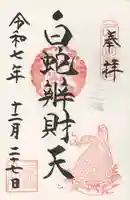 奉拝
白蛇辨財天
令和七年
十二月二十七日